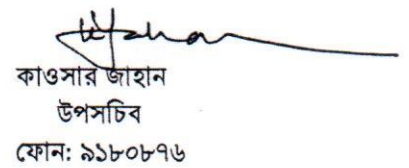 কাওসার জাহান
উপসচিব
ফোন: ৯১৮০৮৭৬